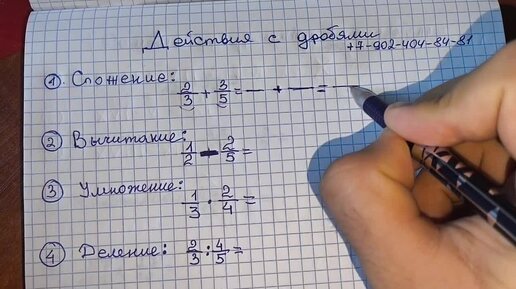 Действия с дробями
+7-902-404-84-81
① Сложение: 2/3 + 3/5 = — + — = —
② Вычитание: 1/2 - 2/5 =
③ Умножение: 1/3 · 2/4 =
④ Деление: 2/3 : 4/5 =